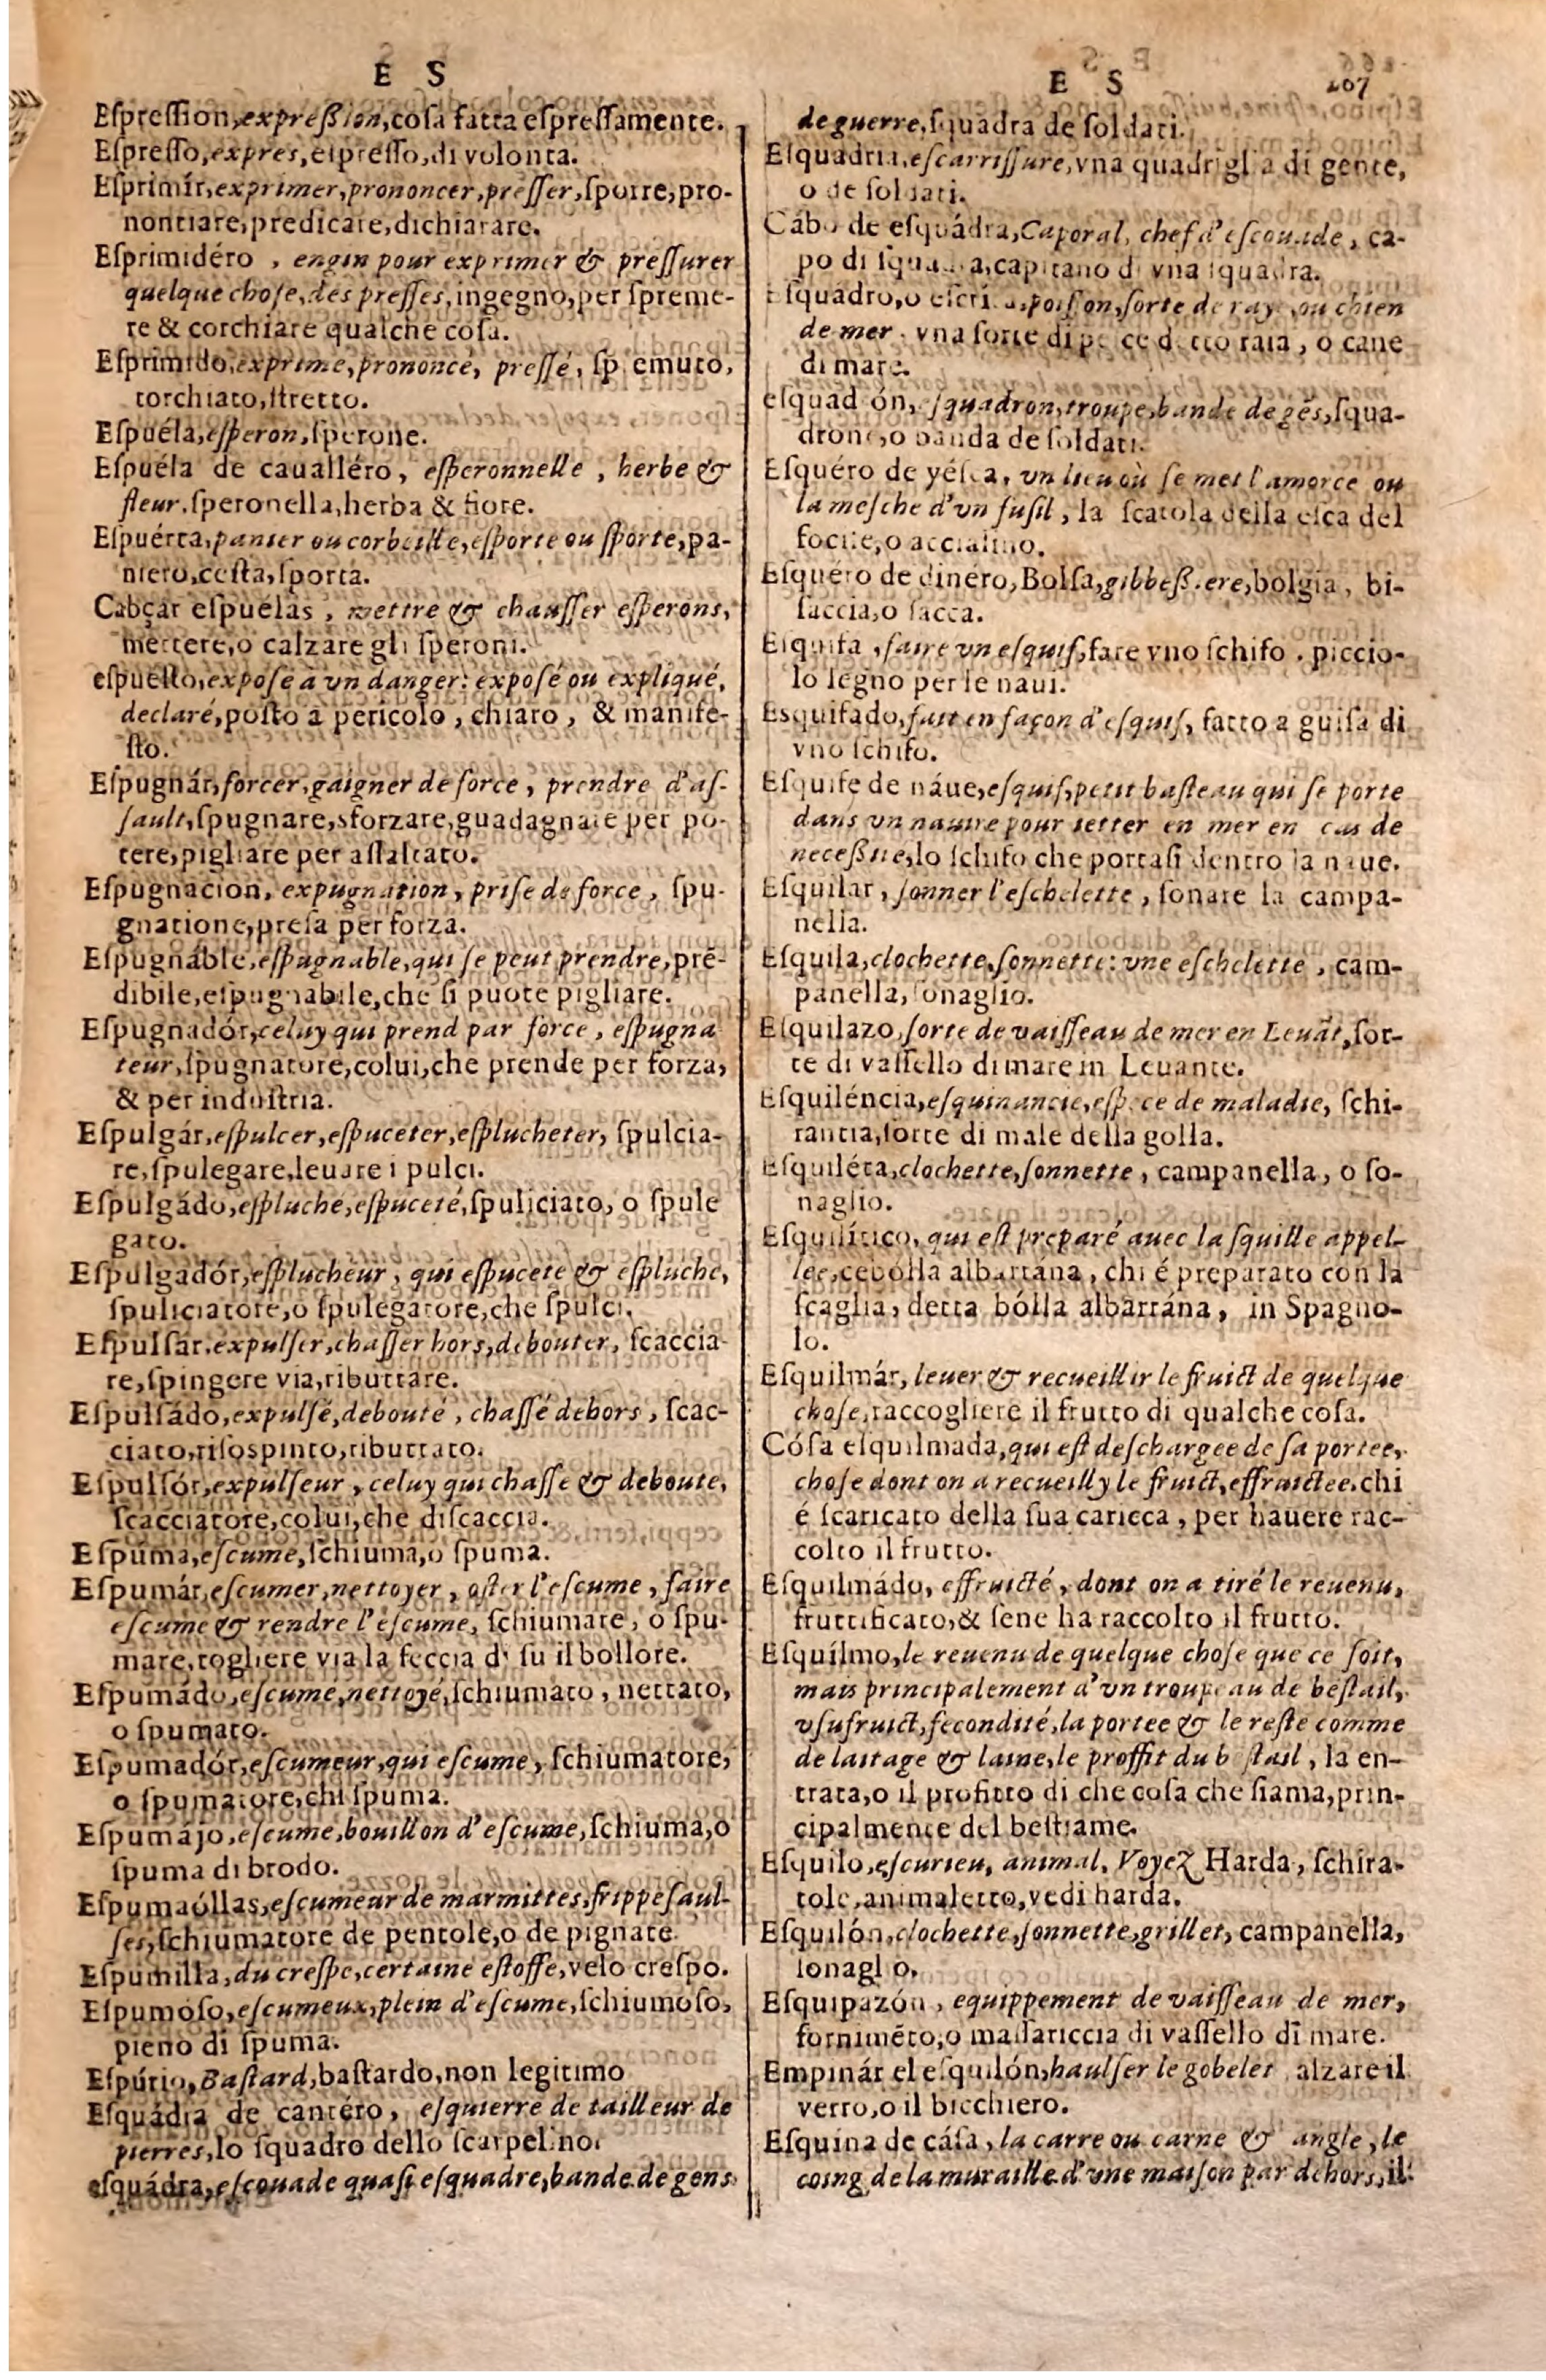 E S
Eſpreſſion, expreßion, coſa fatta eſpreſſamente.
Eſpreſſo, expres, eſpreſſo, di volonta.
Eſprimír, exprimer, prononcer, preſſer, ſporre, pro-
nontiare, predicare, dichiarare.
Eſprimidéro , engin pour exprimer & preſſurer
quelque choſe, des preſſes, ingegno, per ſpreme-
re & corchiare qualche coſa.
Eſprimido, exprime, prononcé, preſſé, ſp emuto,
torchiato, ſtretto.
Eſpuéla, eſperon, ſperone.
Eſpuéla de caualléro, eſperonnelle , herbe &
fleur, ſperonella, herba & fiore.
Eſpuérta, panier ou corbeille, eſporte ou ſporte, pa-
niero, ceſta, ſporta.
Cabçar eſpuélas , mettre & chauſſer eſperons,
mettere, o calzare gli ſperoni.
eſpueſto, expoſé à vn danger: expoſé ou expliqué,
declaré, poſto a pericolo , chiaro , & manife-
ſto.
Eſpugnár, forcer, gaigner de force , prendre d'aſ-
ſault, ſpugnare, sforzare, guadagnare per po-
tere, pigliare per aſſaltato.
Eſpugnacion, expugnation, priſe de force , ſpu-
gnatione, preſa per forza.
Eſpugnáble, eſpugnable, qui ſe peut prendre, pré-
dibile, eſpugnabile, che ſi puote pigliare.
Eſpugnadór, celuy qui prend par force , eſpugna
teur, ſpugnatore, colui, che prende per forza,
& per induſtria.
Eſpulgár, eſpulcer, eſpuceter, eſplucheter, ſpulcia-
re, ſpulegare, leuare i pulci.
Eſpulgádo, eſpluche, eſpuceté, ſpuliciato, o ſpule
gato.
Eſpulgadór, eſplucheur , qui eſpucete & eſpluche,
ſpuliciatore, o ſpulegatore, che ſpulci.
Eſpulſár. expulſer, chaſſer hors, debouter, ſcaccia-
re, ſpingere via, ributtare.
Eſpulſádo, expulſé, debouté , chaſſé dehors , ſcac-
ciato, riſospinto, ributtato.
Eſpulſór, expulſeur , celuy qui chaſſe & deboute,
ſcacciatore, colui, che diſcaccia.
Eſpúma, eſcume, ſchiuma, o ſpuma.
Eſpumár, eſcumer, nettoyer , oſter l'eſcume , faire
eſcume & rendre l'eſcume, ſchiumare, o ſpu-
mare, togliere via la feccia di ſu il bollore.
Eſpumádo, eſcume, nettoyé, ſchiumato , nettato,
o ſpumato.
Eſpumadór, eſcumeur, qui eſcume , ſchiumatore,
o ſpumatore, chi ſpuma.
Eſpumájo, eſcume, bouillon d'eſcume, ſchiuma, o
ſpuma di brodo.
Eſpumaóllas, eſcumeur de marmittes, frippeſaul-
ſes, ſchiumatore de pentole, o de pignate
Eſpumilla, du creſpe, certaine eſtoffe, velo creſpo.
Eſpumóſo, eſcumeux, plein d'eſcume, ſchiumoſo,
pieno di ſpuma.
Eſpúrio, Baſtard, baſtardo, non legitimo
Eſquádia de cantéro, eſquierre de tailleur de
pierres, lo ſquadro dello ſcarpelino.
eſquádra, eſcouade quaſi eſquadre, bande de gens
E S 207
de guerre, ſquadra de ſoldati.
Eſquadria, eſcarriſſure, vna quadriglia di gente,
o de ſoldati.
Cábo de eſquádra, Caporal, chef d'eſcouade , ca-
po di ſquadra, capitano di vna ſquadra.
Eſquadro, o poiſſon, ſorte de raye, ou chien
de mer . vna ſorte di peſce detto raia , o cane
di mare.
eſquad ón, eſquadron, troupe, bande de gés, ſqua-
drone, o banda de ſoldati.
Eſquéro de yéſca, vn lieu où ſe met l'amorce ou
la meſche d'vn fuſil , la ſcatola della eſca del
focile, o acciallino.
Eſquéro de dinéro, Bolſa, gibbeß.ere, bolgia , bi-
ſaccia, o ſacca.
Eſquifa , faire vn eſquif, fare vno ſchifo . piccio-
lo legno per le naui.
Esquifado, fait en façon d'eſquif, fatto a guiſa di
vno ſchifo.
Eſquife de náue, eſquif, petit baſteau qui ſe porte
dans vn nauire pour ietter en mer en cas de
neceßité, lo ſchifo che portaſi dentro la naue.
Eſquilar , ſonner l'eſchelette , ſonare la campa-
nella.
Eſquila, clochette, ſonnette: vne eſchelette , cam-
panella, ſonaglio.
Eſquilazo, ſorte de vaiſſeau de mer en Leuãt, ſor-
te di vaſſello di mare in Leuante.
Eſquiléncia, eſquinancie, eſpece de maladie, ſchi-
rantia, ſorte di male della golla.
Eſquiléta, clochette, ſonnette , campanella , o ſo-
naglio.
Eſquilítico, qui eſt preparé auec la ſquille appel-
lee, cebólla albarrána , chi é preparato con la
ſcaglia , detta bólla albarrána , in Spagno-
lo.
Eſquilmár, leuer & recueillir le fruict de quelque
choſe, raccogliere il frutto di qualche coſa.
Cóſa eſquilmada, qui eſt deſchargee de ſa portee,
choſe dont on a recueilly le fruict, effruictee. chi
é ſcaricato della ſua caricca , per hauere rac-
colto il frutto.
Eſquilmádo, effruicté , dont on a tiré le reuenu,
fruttificato, & ſene ha raccolto il frutto.
Eſquílmo, le reuenu de quelque choſe que ce ſoit,
mais principalement d'vn troupeau de beſtail,
vſufruict, fecondité, la portee & le reſte comme
de laitage & laine, le proffit du b ſtail , la en-
trata, o il profitto di che coſa che ſiama, prin-
cipalmente del beſtiame.
Eſquilo, eſcurieu, animal, Voyez Harda , ſchira-
tole, animaletto, vedi harda.
Eſquilón, clochette, ſonnette, grillet, campanella,
ſonaglio.
Eſquipazón , equippement de vaiſſeau de mer,
fornimẽto, o maſſariccia di vaſſello di mare.
Empinár el eſquilón, haulſer le gobelet alzare il
verro, o il bicchiero.
Eſquina de cáſa , la carre ou carne & angle , le
coing de la muraille d'vne maiſon par dehors, il